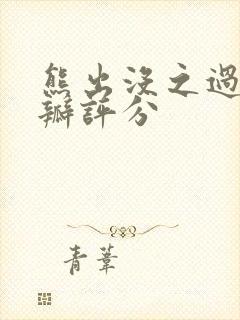 熊出沒之過
瓣評分
青葦